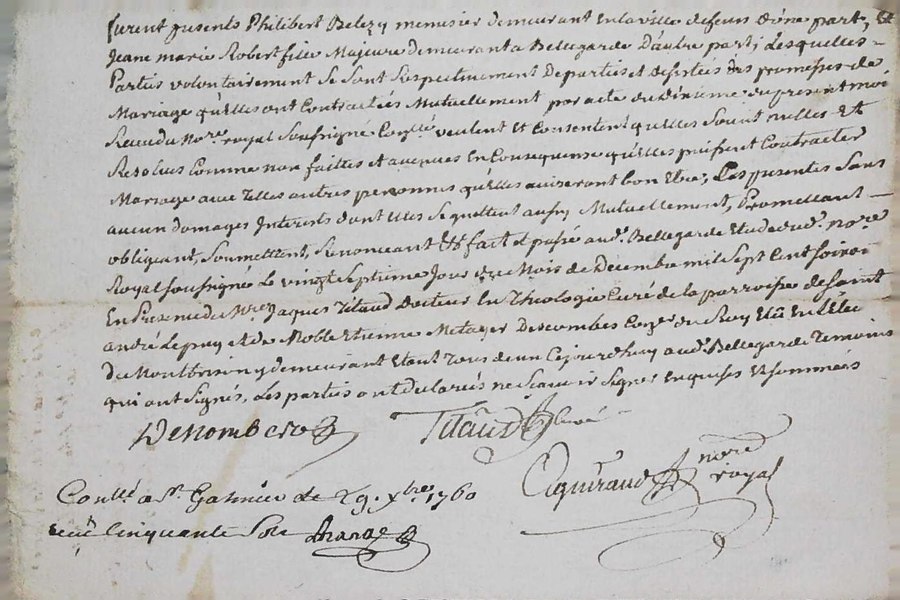 furent presents Philibert Belezy menusier demeurant en la ville de feurs d'une part, Et
Jeane marie Robert fille Majeure demeurant a Bellegarde D'autre part; Lesquelles
Parties volontairement se sont Respectivement Departies et desistées des promesses de
Mariage qu'elles ont Contractées Mutuellement par acte du dixieme du present moi
Receu du No.re royal Soussigné Veulent Et Consentent qu'elles soient nulles Et
Resolues Comme non faittes et avenues En Consequense qu'elles puissent Contracter
Mariage avec Telles autres personnes qu'elles aviseront bon Etre; Les presentes sans
aucun Domages Interets dont Elles se quittent aussy Mutuellement, Promettant
obligeant, Soumettant, Renonceant &.a fait et passé aud. Bellegarde Etude dud. no.re
Royal soussigné Le vingt Septieme Jour du Mois de Decembre mil Sept Cent soixante
En Presence de M.re Jaques Titaud Docteur En Theologie Curé de la parroisse de saint
andré Lepuy et de Noble Etienne Metayer Descombes Con.er du Roy En L'Elec
du Montbrison y demeurant Etant Tous deux Cejourd'huy aud. Bellegarde Temoins
qui ont signés, Les parties ont declarés ne scavoir signer Enquises Et sommées
Titaud Curé
no.re
royal
Con.llé a S.t Galmier Le 29. xbre 1760
receu Cinquante Sols